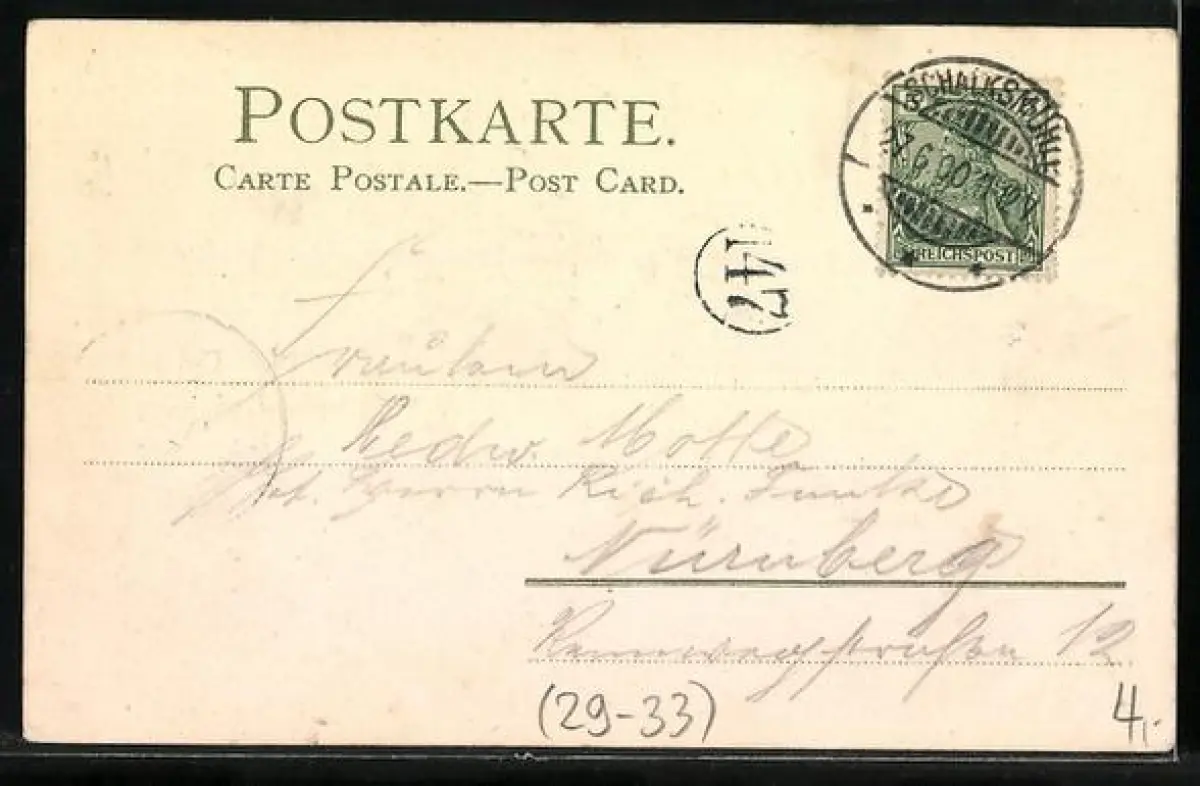 POSTKARTE.
CARTE POSTALE.—POST CARD.
SCHALKSMÜHLE
6.00
REICHSPOST
142
Fräulein
Hedw. Motte
Herrn Rich. Funke
Nürnberg
12
(29-33)
4,-